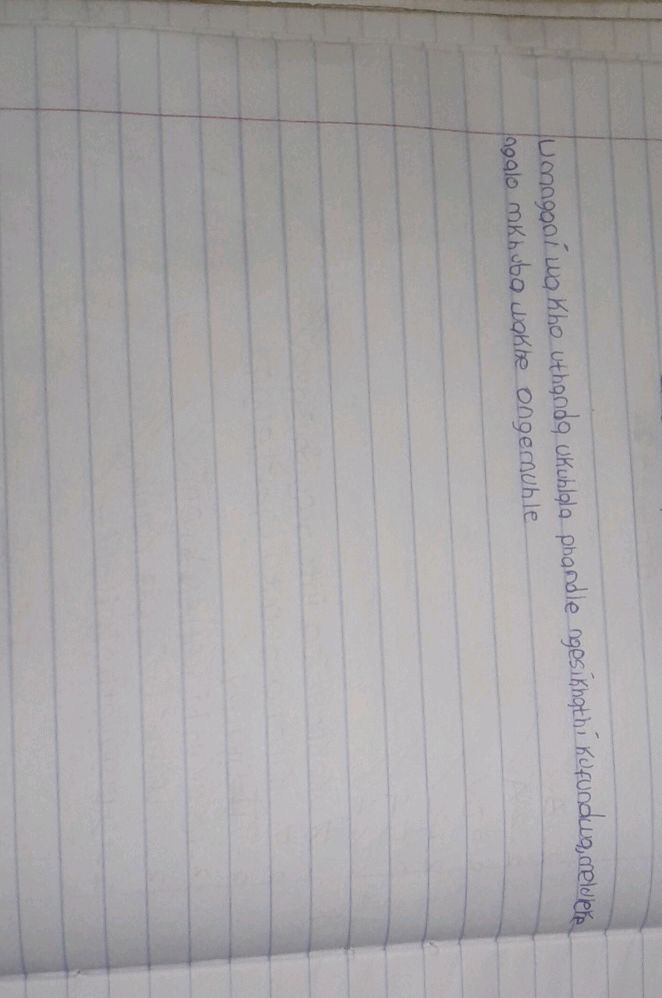 Umngani wakho uthanda ukuhlala phandle ngesikhathi kufundwa, meluleke
ngalo mkhuba wakhe ongemuhle